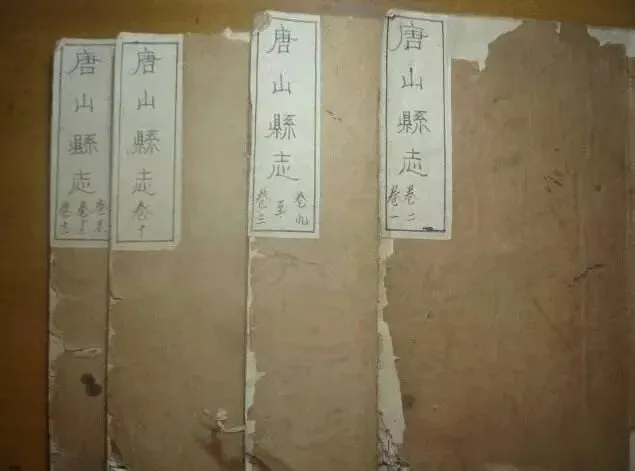 唐山縣志
卷一
卷二
唐山縣志
卷三
至
卷九
唐山縣志
卷十
唐山縣志